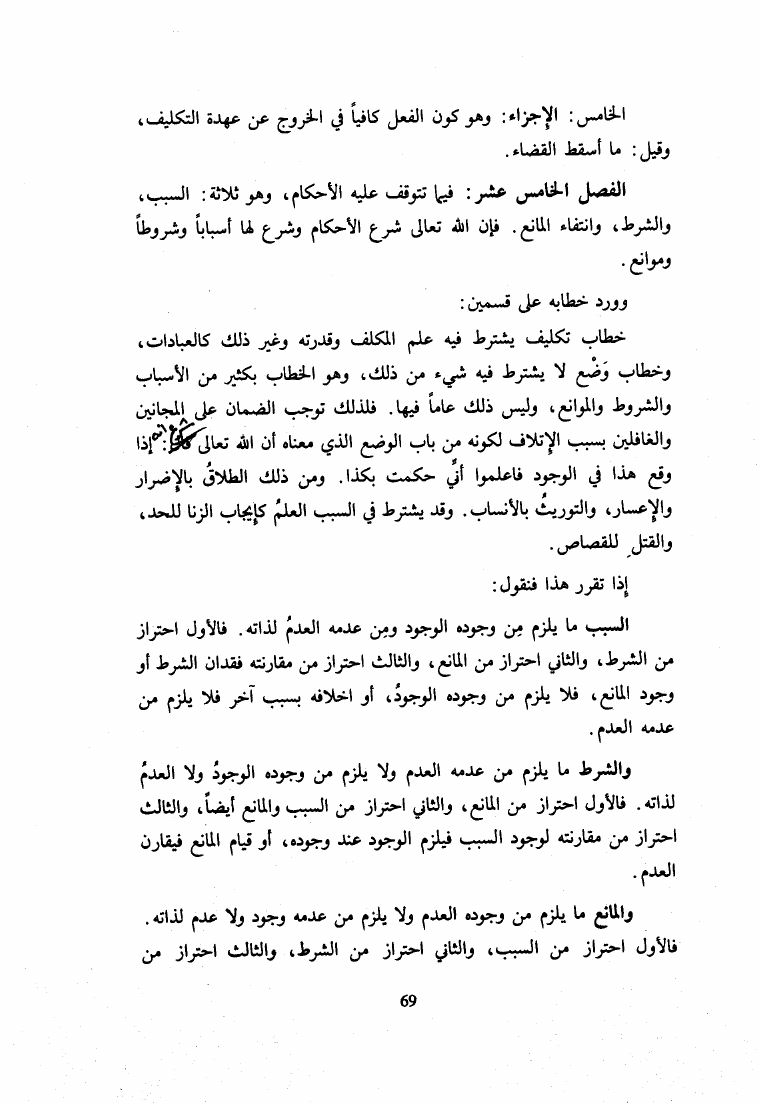 الخامس: الإجزاء: وهو كون الفعل كافياً في الخروج عن عهدة التكليف،
وقيل: ما أسقط القضاء.
الفصل الخامس عشر: فيما تتوقف عليه الأحكام، وهو ثلاثة: السبب،
والشرط، وانتفاء المانع. فإن الله تعالى شرع الأحكام وشرع لها أسباباً وشروطاً
وموانع.
وورد خطابه على قسمين:
خطاب تكليف يشترط فيه علم المكلف وقدرته وغير ذلك كالعبادات،
وخطاب وَضْع لا يشترط فيه شيء من ذلك، وهو الخطاب بكثير من الأسباب
والشروط والموانع، وليس ذلك عاماً فيها. فلذلك توجب الضمان على المجانين
والغافلين بسبب الإتلاف لكونه من باب الوضع الذي معناه أن الله تعالى : إذا
وقع هذا في الوجود فاعلموا أنّي حكمت بكذا. ومن ذلك الطلاقُ بالإضرار
والإعسار، والتوريثُ بالأنساب. وقد يشترط في السبب العلمُ كإيجاب الزنا للحد،
والقتل للقصاص.
إذا تقرر هذا فنقول:
السبب ما يلزم مِن وجوده الوجود ومِن عدمه العدمُ لذاته. فالأول احتراز
من الشرط، والثاني احتراز من المانع، والثالث احتراز من مقارنته فقدان الشرط أو
وجود المانع، فلا يلزم من وجوده الوجودُ، أو اخلافه بسبب آخر فلا يلزم من
عدمه العدم.
والشرط ما يلزم من عدمه العدم ولا يلزم من وجوده الوجودُ ولا العدمُ
لذاته. فالأول احتراز من المانع، والثاني احتراز من السبب والمانع أيضاً، والثالث
احتراز من مقارنته لوجود السبب فيلزم الوجود عند وجوده، أو قيام المانع فيقارن
العدم.
والمانع ما يلزم من وجوده العدم ولا يلزم من عدمه وجود ولا عدم لذاته.
فالأول احتراز من السبب، والثاني احتراز من الشرط، والثالث احتراز من
69